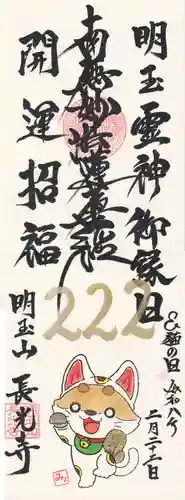 明玉霊神御縁日
南無妙法蓮華経
開運招福
222
令和八年
二月二十二日
明玉山 長光寺